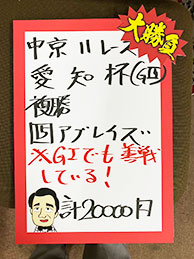 大勝負
中京11レース
愛知杯(GⅢ)
複勝
四アブレイズ
※GIでも善戦
している!
計20000円